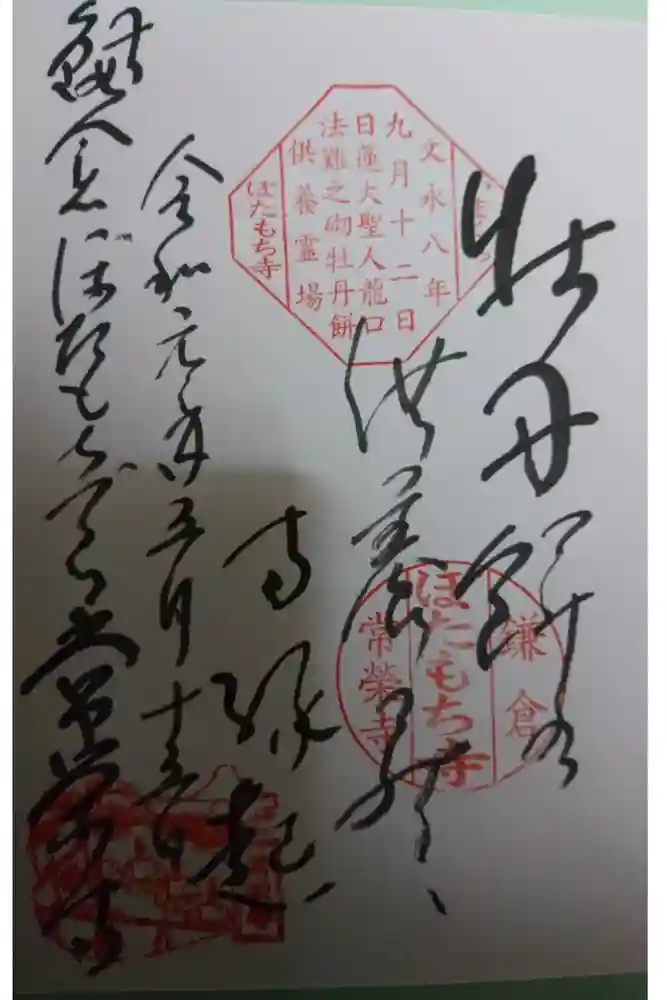 牡丹餅
供養
寺縁起
令和元年五月十五日
鎌倉ぼたもちでら常栄寺
文永八年
九月十二日
日蓮大聖人龍口
法難之砌牡丹餅
供養霊場
ぼたもち寺
鎌倉
ぼたもち寺
常榮寺